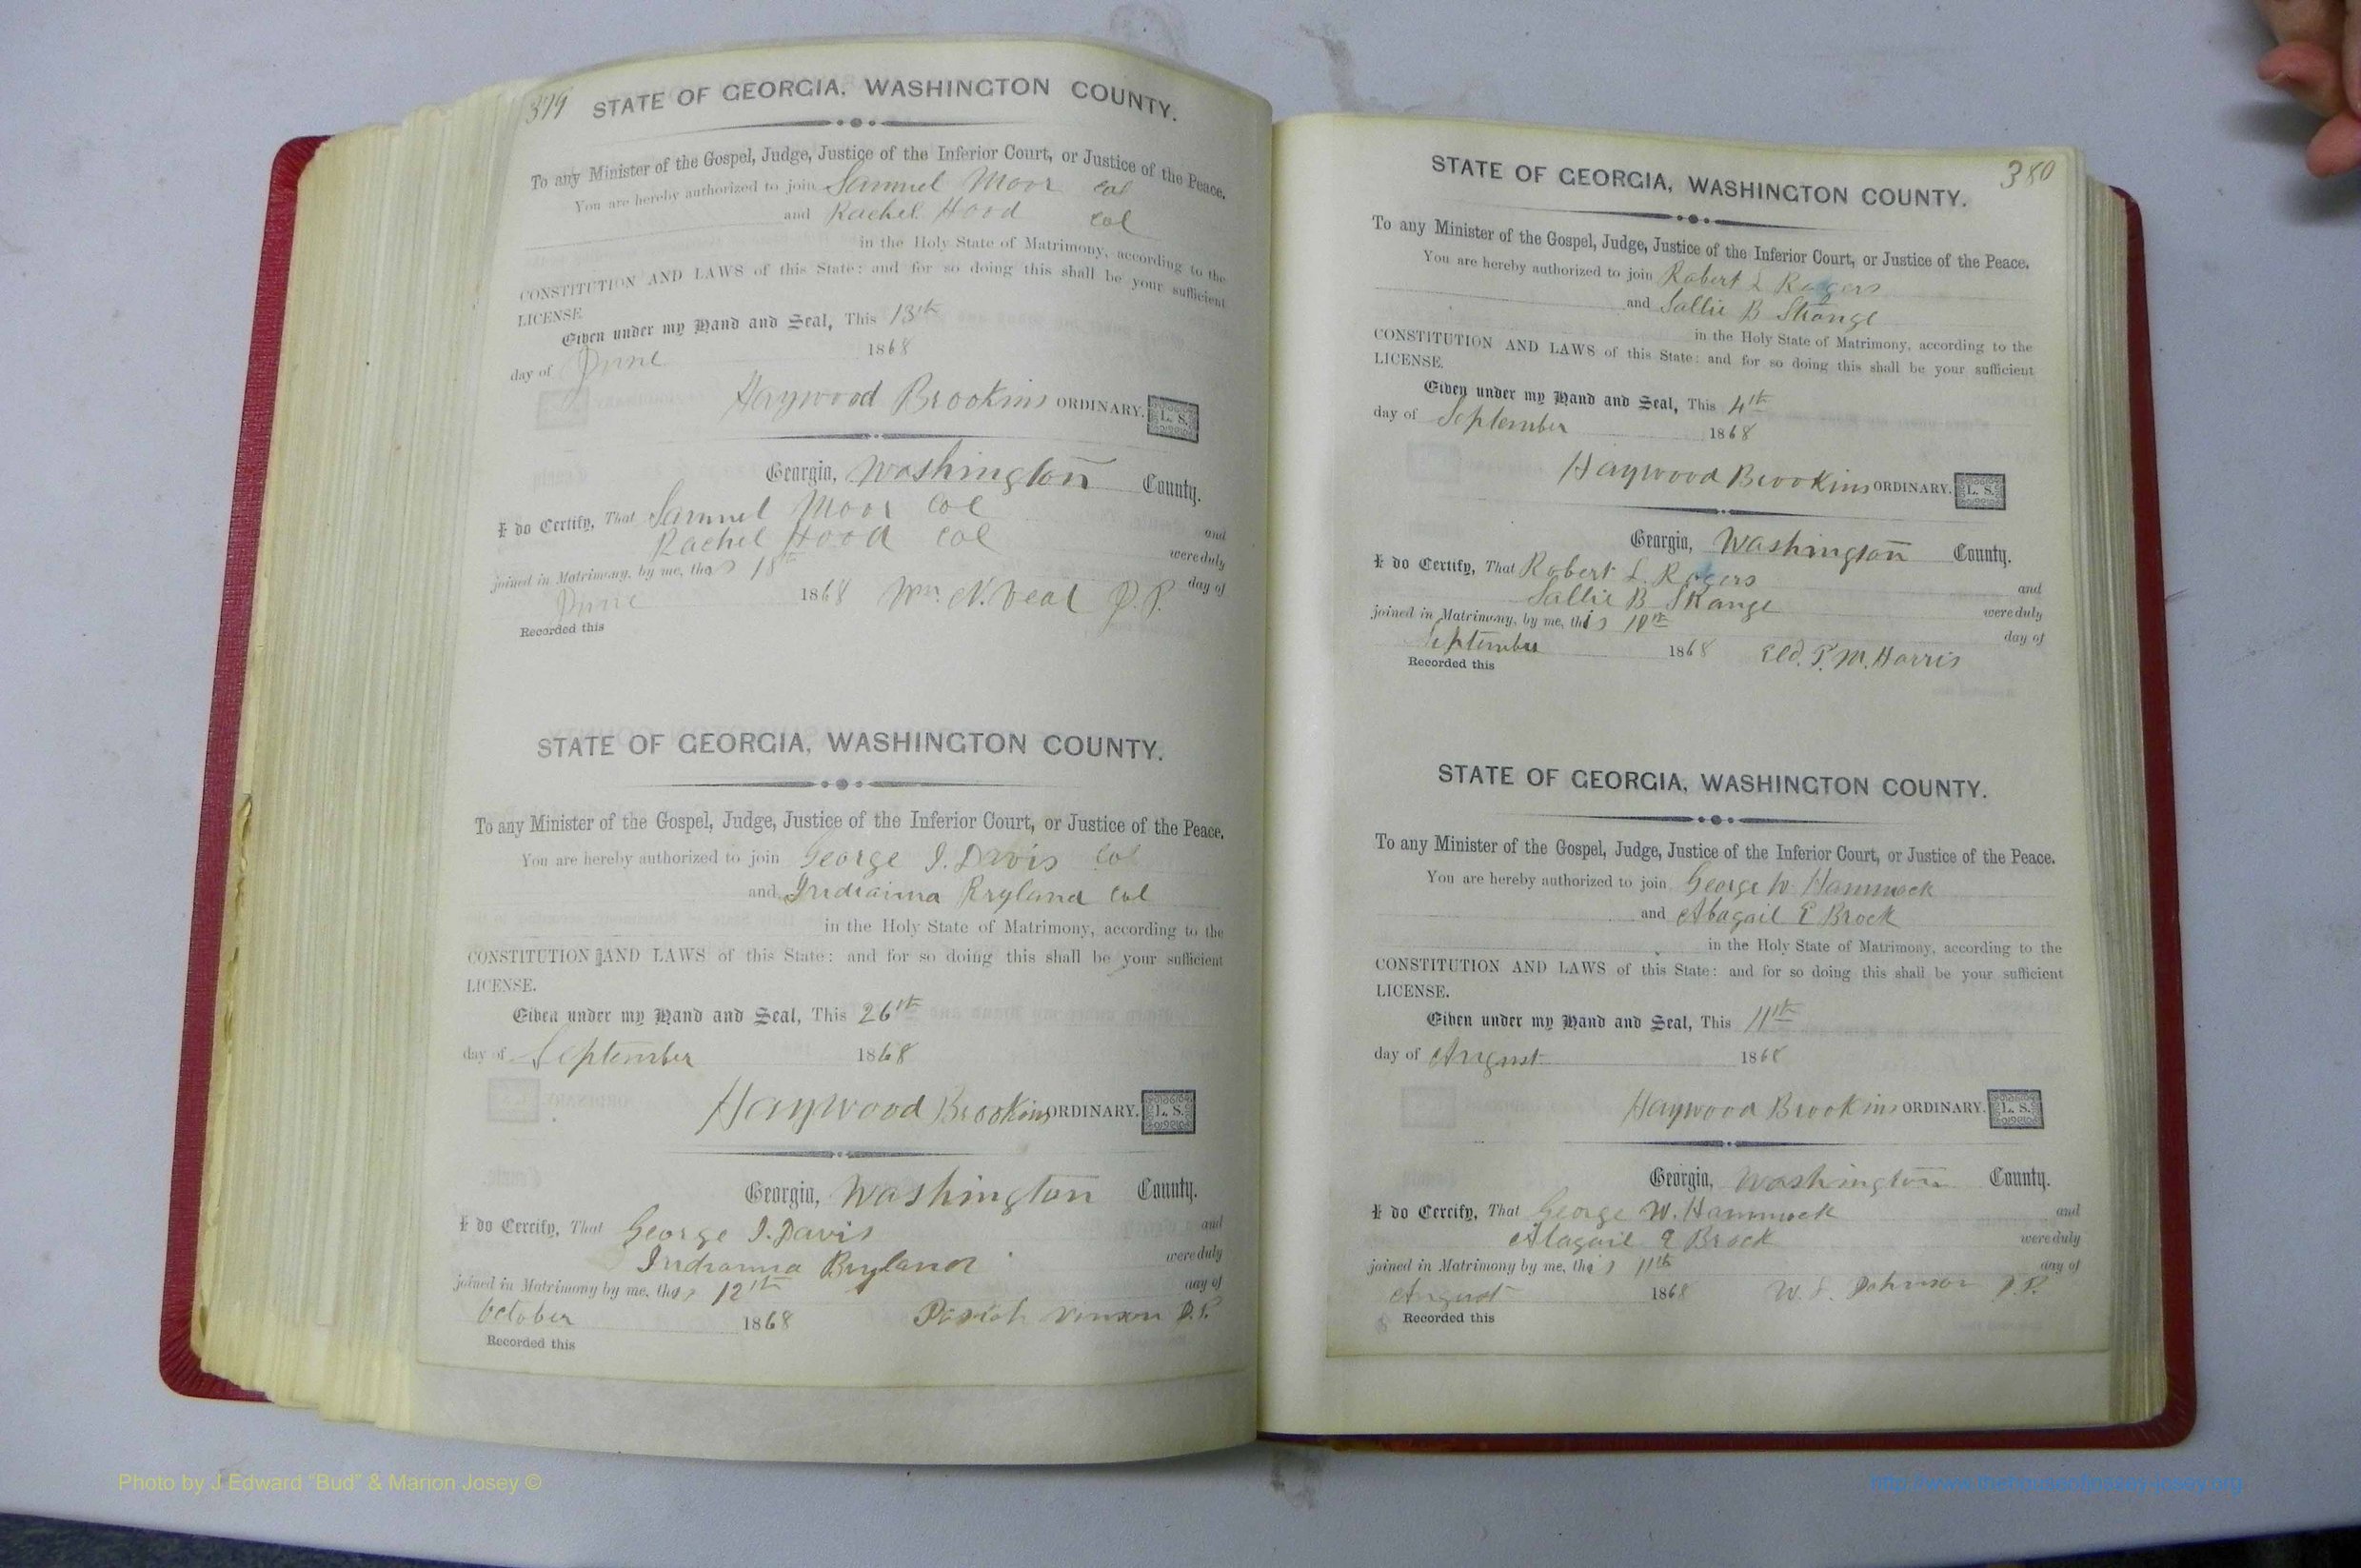 379
STATE OF GEORGIA, WASHINGTON COUNTY.
To any Minister of the Gospel, Judge, Justice of the Inferior Court, or Justice of the Peace.
You are hereby authorized to join Samuel Moor col
and Rachel Hood col
in the Holy State of Matrimony, according to the
CONSTITUTION AND LAWS of this State: and for so doing this shall be your sufficient
LICENSE.
Given under my Hand and Seal, This 13th
day of June 1868
Haywood Brookins ORDINARY. L. S.
Georgia, Washington County.
I do Certify, That Samuel Moor Col and
Rachel Hood col were duly
joined in Matrimony, by me, this 18th day of
June 1868 Wm. N. Veal J.P.
Recorded this
STATE OF GEORGIA, WASHINGTON COUNTY.
To any Minister of the Gospel, Judge, Justice of the Inferior Court, or Justice of the Peace.
You are hereby authorized to join George J. Davis Col
and Indianna Bryland col
in the Holy State of Matrimony, according to the
CONSTITUTION AND LAWS of this State: and for so doing this shall be your sufficient
LICENSE.
Given under my Hand and Seal, This 26th
day of September 1868
Haywood Brookins ORDINARY. L. S.
Georgia, Washington County.
I do Cercify, That George J. Davis and
Indianna Bryland were duly
joined in Matrimony by me, this 12th day of
October 1868 Vinson J.P.
Recorded this
380
STATE OF GEORGIA, WASHINGTON COUNTY.
To any Minister of the Gospel, Judge, Justice of the Inferior Court, or Justice of the Peace.
You are hereby authorized to join Robert L Rogers
and Sallie B Strange
in the Holy State of Matrimony, according to the
CONSTITUTION AND LAWS of this State: and for so doing this shall be your sufficient
LICENSE.
Given under my Hand and Seal, This 4th
day of September 1868
Haywood Brookins ORDINARY. L. S.
Georgia, Washington County.
I do Certify, That Robert L. Rogers and
Sallie B Strange were duly
joined in Matrimony, by me, this 10th day of
September 1868 Eld. P. M. Harris
Recorded this
STATE OF GEORGIA, WASHINGTON COUNTY.
To any Minister of the Gospel, Judge, Justice of the Inferior Court, or Justice of the Peace.
You are hereby authorized to join George W Hammock
and Abagail E Brock
in the Holy State of Matrimony, according to the
CONSTITUTION AND LAWS of this State: and for so doing this shall be your sufficient
LICENSE.
Given under my Hand and Seal, This 11th
day of August 1868
Haywood Brookins ORDINARY. L. S.
Georgia, Washington County.
I do Cercify, That George W. Hammock and
Abagail E Brock were duly
joined in Matrimony by me, this 11th day of
August 1868 W. S. Johnson J.P.
Recorded this
Photo by J Edward "Bud" & Marion Josey ©